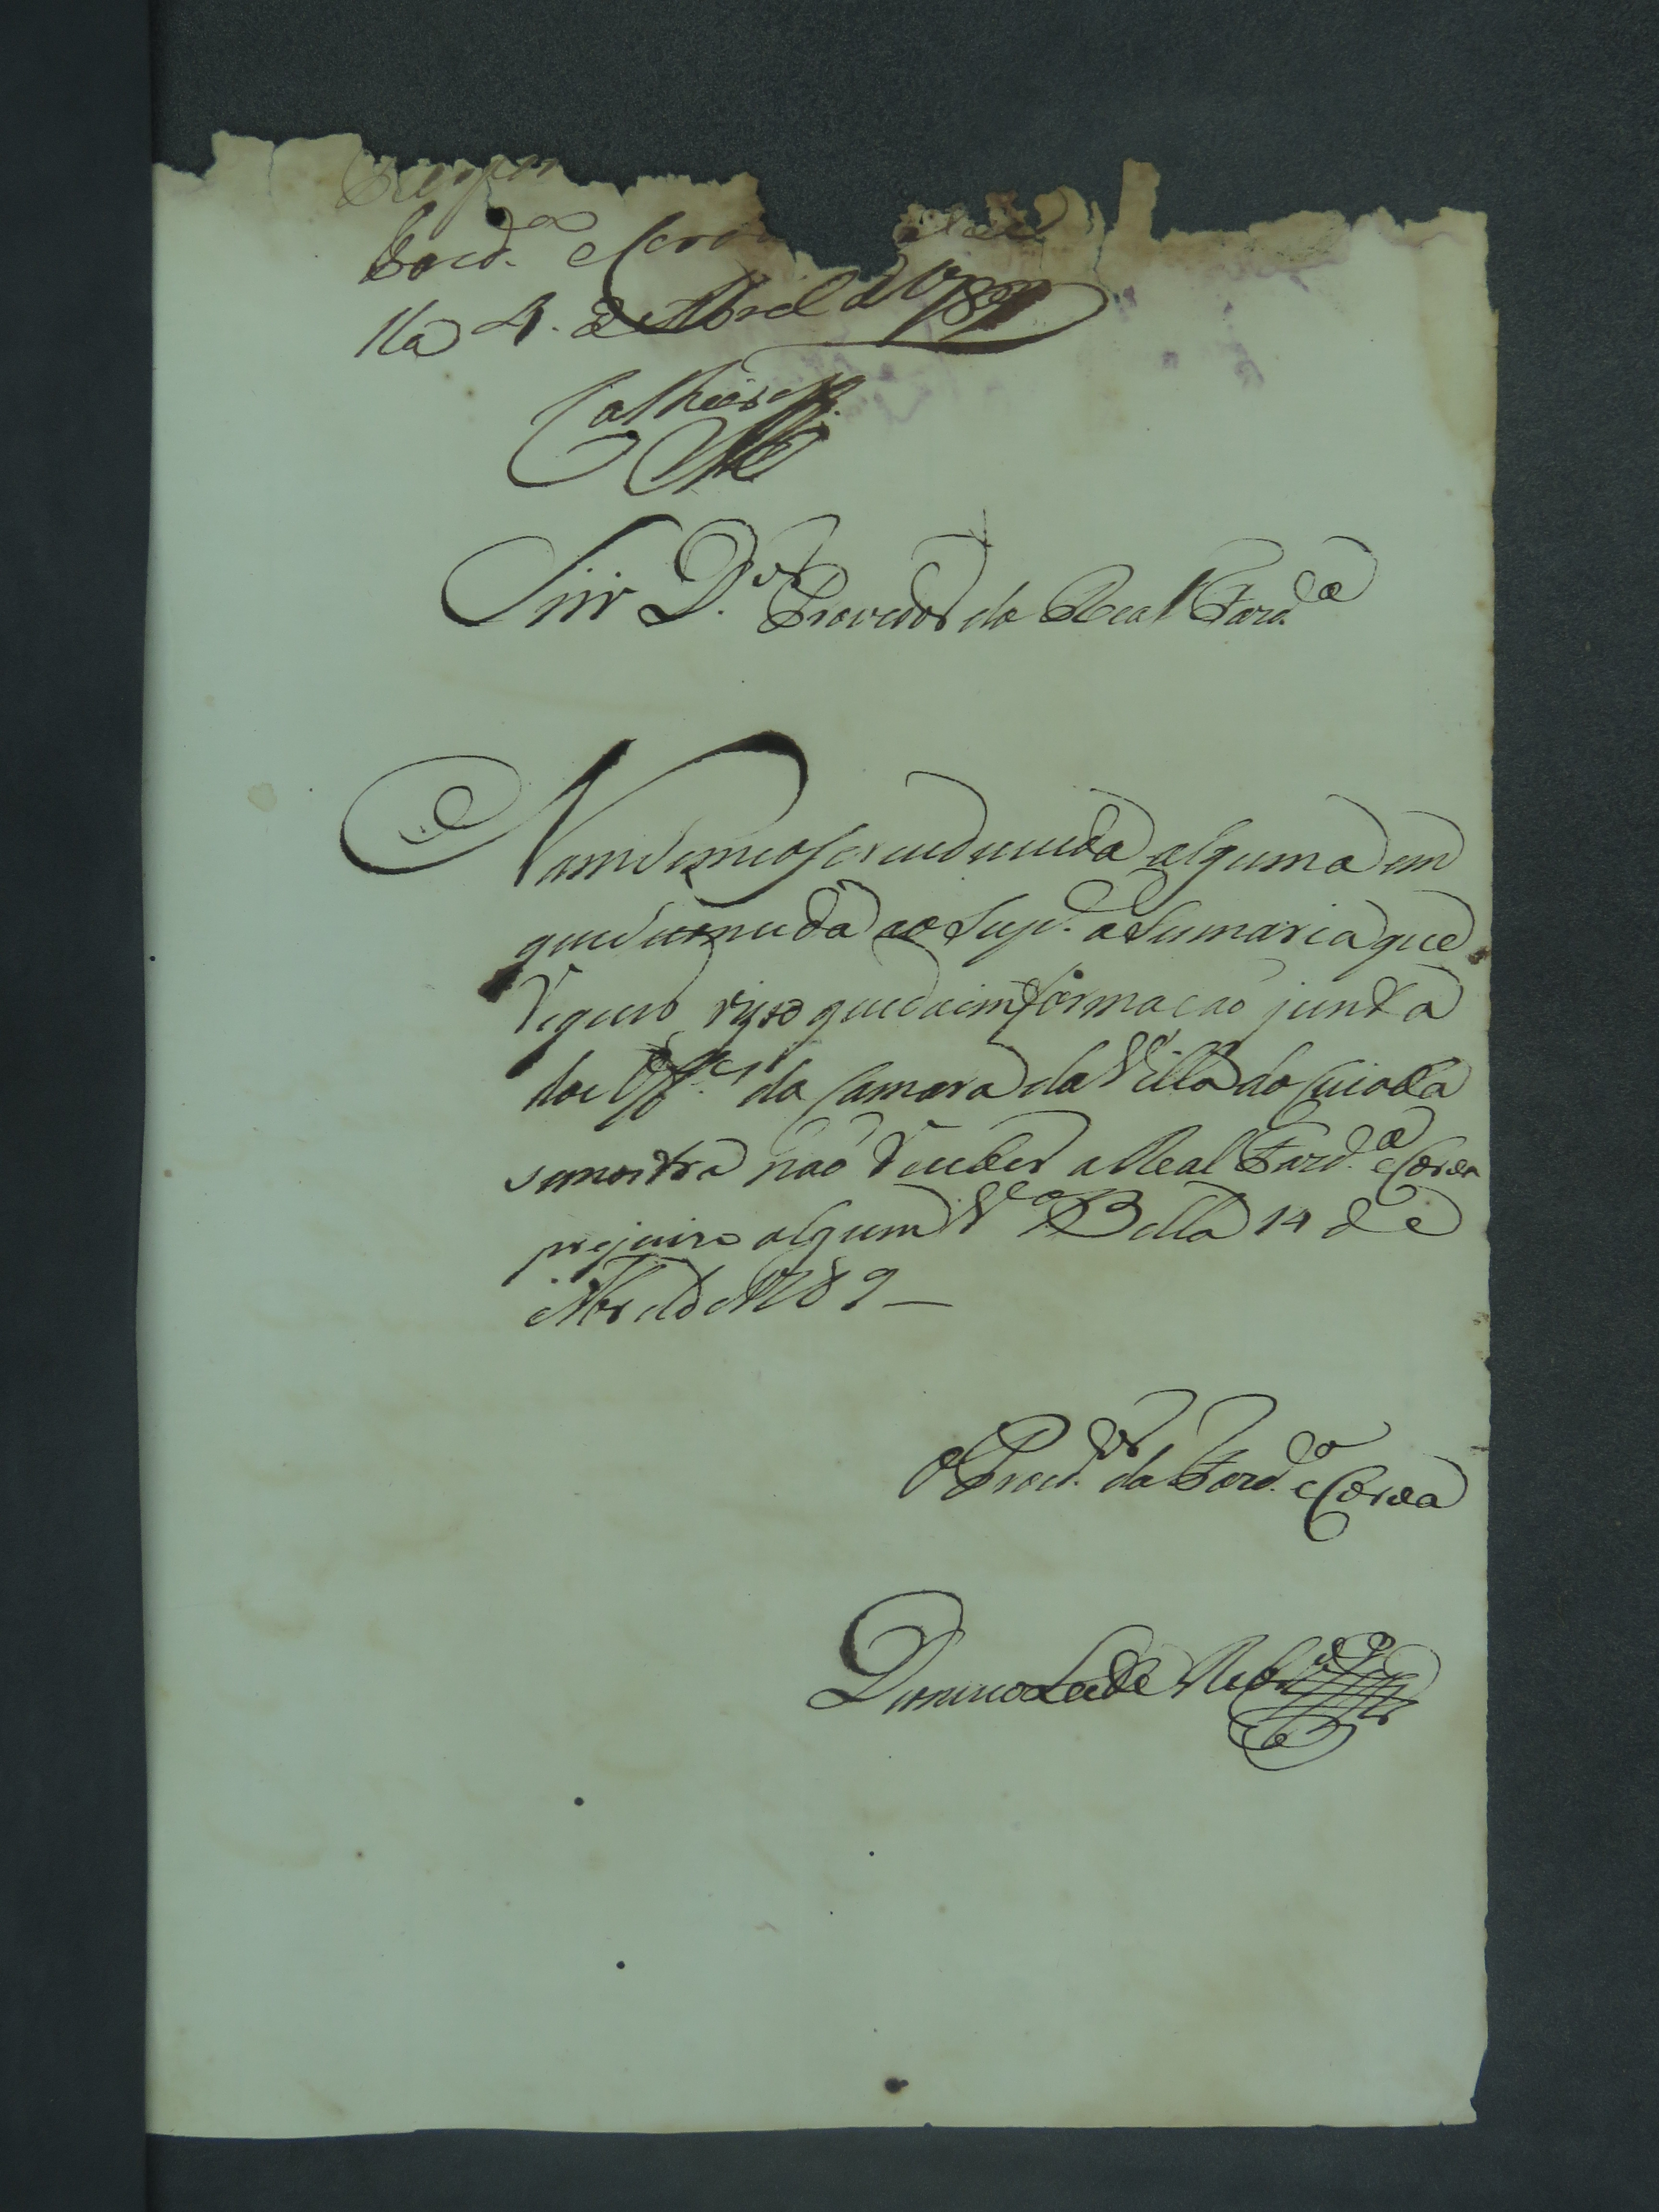 Respon
Fazd.ª e Coroa
lla 4. de Abril de 1789
Snr D.or Provedor da Real Fazd.ª
Nam se me oferece duvida alguma em
que se conceda ao Sup.e a Sesmaria que
Requer visto que da informacaõ junta
dos Off.es da Camara da Villa do Cuiaba
se mostra naõ Receber a Real Fazd.ª e Coroa
prejuizo algum V.ª Bella 14 de
Abril de 1789 —
O Procd.or da Fazd.ª e Coroa
Leite Ribr.º